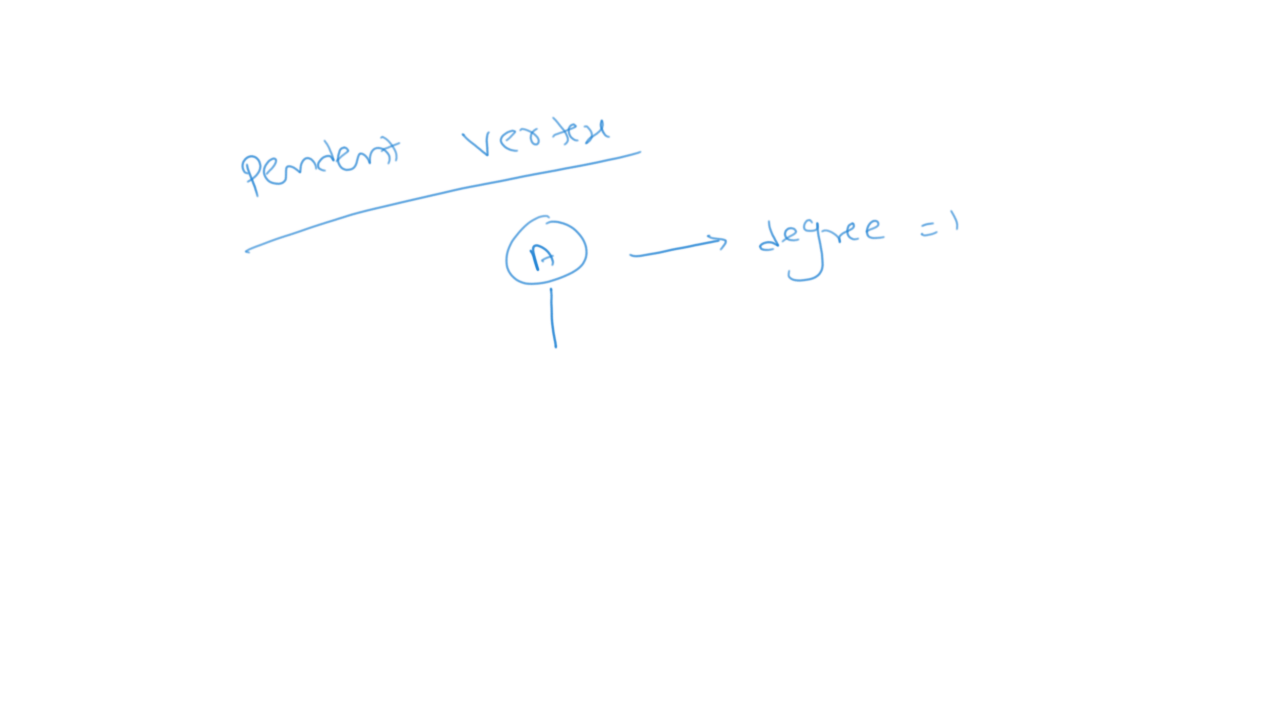 Pendent vertex
A → degree = 1